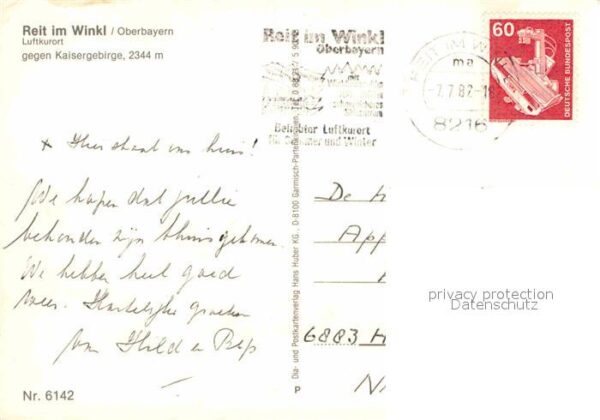 Reit im Winkl / Oberbayern
Luftkurort
gegen Kaisergebirge, 2344 m
x Hier staat ons huis!
We hopen dat jullie
behouden zijn thuisgekomen.
We hebben heel goed
weer. Hartelijke groeten
van Hild en Bep
Nr. 6142
Dia- und Postkartenverlag Hans Huber KG., D-8100 Garmisch-Partenkirchen
P
Reit im Winkl
Oberbayern
Beliebter Luftkurort
für Sommer und Winter
REIT IM W
ma
-7.7.82-18
8216
60
DEUTSCHE BUNDESPOST
De H
App
6883 H
N
privacy protection
Datenschutz